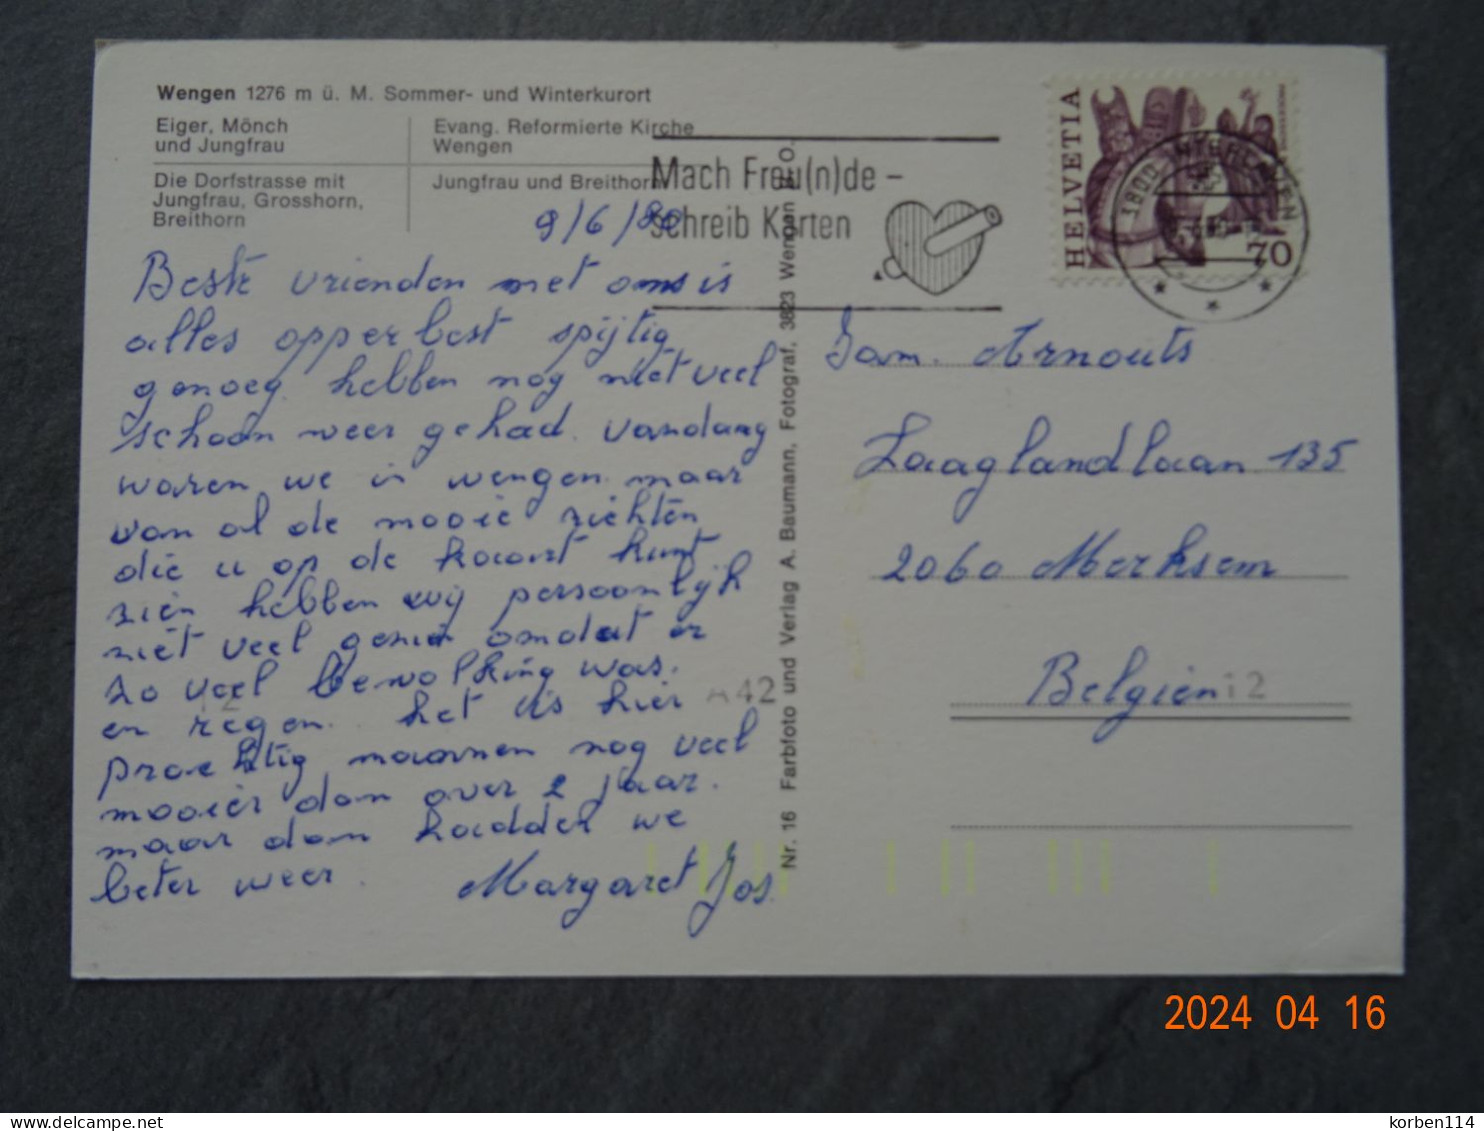 Wengen 1276 m ü. M. Sommer- und Winterkurort
Eiger, Mönch
und Jungfrau
Evang. Reformierte Kirche
Wengen
Die Dorfstrasse mit
Jungfrau, Grosshorn,
Breithorn
Jungfrau und Breithorn
9/6/80
Beste vrienden met ons is
alles opperbest spijtig
genoeg hebben nog niet veel
schoon weer gehad. vandaag
waren we in wengen maar
van al de mooie zichten
die u op de kaart kunt
zien hebben wij persoonlijk
niet veel gezien omdat er
zo veel bewolking was.
en regen. het is hier
prachtig maar nog veel
mooier dan over 2 jaar.
maar dan hadden we
beter weer.
Margaret Jos.
Nr. 16 Farbfoto und Verlag A. Baumann, Fotograf, 3823 Wengen B.O.
Mach Freu(n)de –
schreib Karten
HELVETIA
70
1800 INTERLAKEN
Fam. Arnouts
Laaglandlaan 135
2060 Merksem
Belgien
A42
12
2024 04 16
delcampe.net
korben114